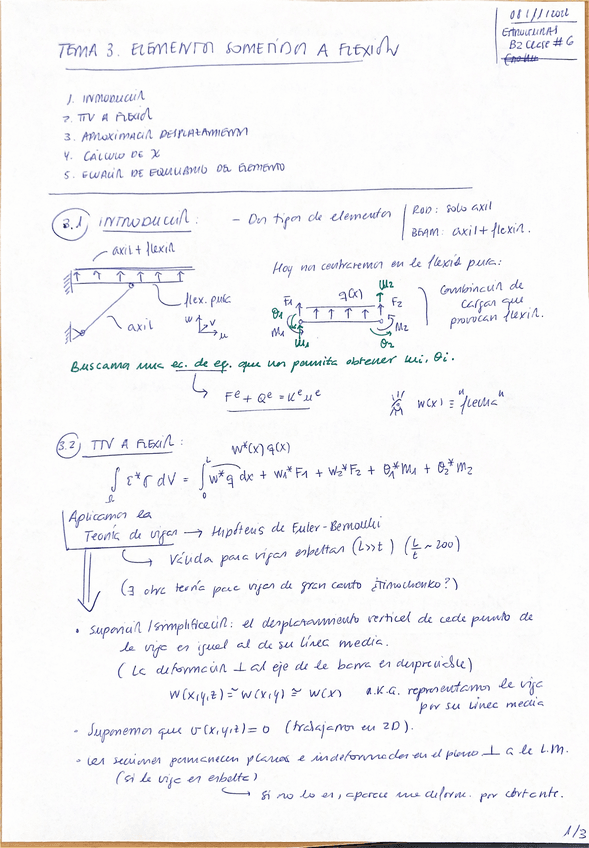 08/11/2022
ESTRUCTURAS
B2 CLASE #6
TEMA 3. ELEMENTOS SOMETIDOS A FLEXIÓN
1. INTRODUCCIÓN
2. TTV A FLEXIÓN
3. APROXIMACIÓN DESPLAZAMIENTOS
4. CÁLCULO DE X
5. ECUACIÓN DE EQUILIBRIO DEL ELEMENTO
3.1 INTRODUCCIÓN: - Dos tipos de elementos
ROD: solo axil
BEAM: axil + flexión.
axil + flexión
flex. pura
axil
w v u
Hoy nos centraremos en la flexión pura:
F1 q(x) w2 F2
θ1 M1 w1 θ2 M2
Combinación de
cargas que
provocan flexión.
Buscamos una ec. de eq. que nos permita obtener wi, θi.
Fᵉ + Qᵉ = Kᵉuᵉ
w(x) ≡ "flecha"
3.2) TTV A FLEXIÓN:
w*(x) q(x)
∫Ω ε*σ dV = ∫₀ᴸ w*q dx + w1*F1 + w2*F2 + θ1*M1 + θ2*M2
Aplicamos la
Teoría de vigas → Hipótesis de Euler-Bernoulli
Válida para vigas esbeltas (L>>t) (L/t ~ 200)
(∃ otra teoría para vigas de gran canto ¿Timochenko?)
• Suposición/Simplificación: el desplazamiento vertical de cada punto de
la viga es igual al de su línea media.
(La deformación ⊥ al eje de la barra es despreciable)
w(x,y,z) ≅ w(x,y) ≅ w(x) a.k.a. representamos la viga
por su línea media
- Suponemos que v(x,y,z) = 0 (trabajamos en 2D).
• Las secciones permanecen planas e indeformadas en el plano ⊥ a la L.M.
(si la viga es esbelta)
Si no lo es, aparece una deform. por cortante.
1/3